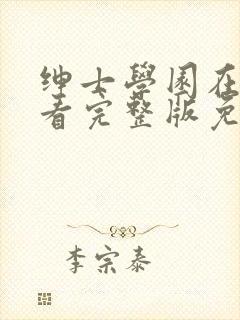 绅士學园在
看完整版免
李宗泰